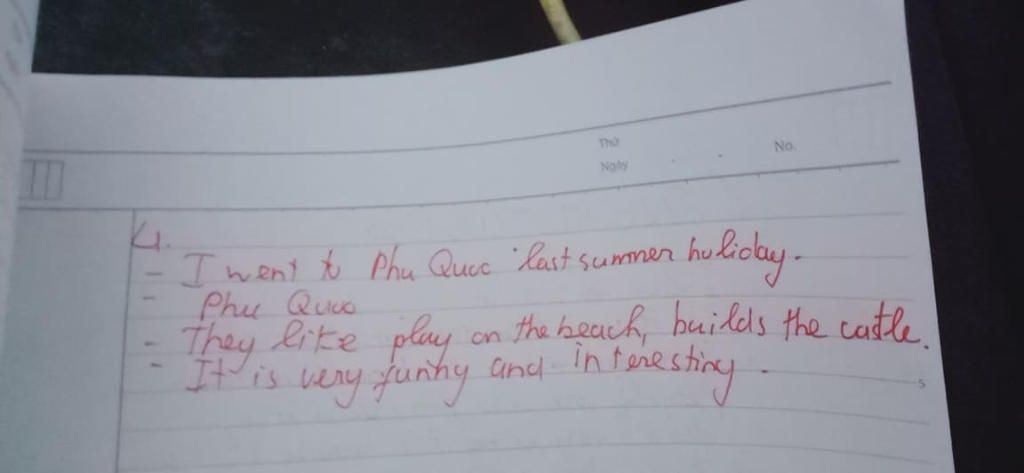 Thứ
Ngày
No.
4.
- I went to Phu Quoc last summer holiday.
- Phu Quoc
- They like play on the beach, builds the castle.
- It is very funny and interesting.
5